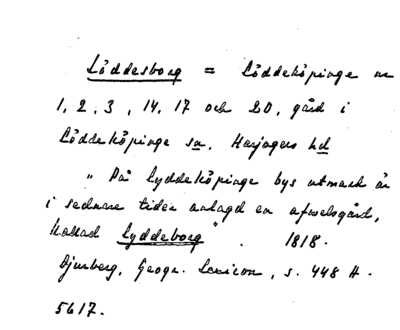 Löddesborg = Löddeköpinge nr
1, 2, 3, 14, 17 och 20, gård i
Löddeköpinge sn, Harjagers hd
"På Lyddeköpinge bys utmark är
i sednare tider anlagd en afvelsgård,
kallad Lyddeborg". 1818.
Djurberg, Geogr. Lexicon, s. 448 H.
5617.